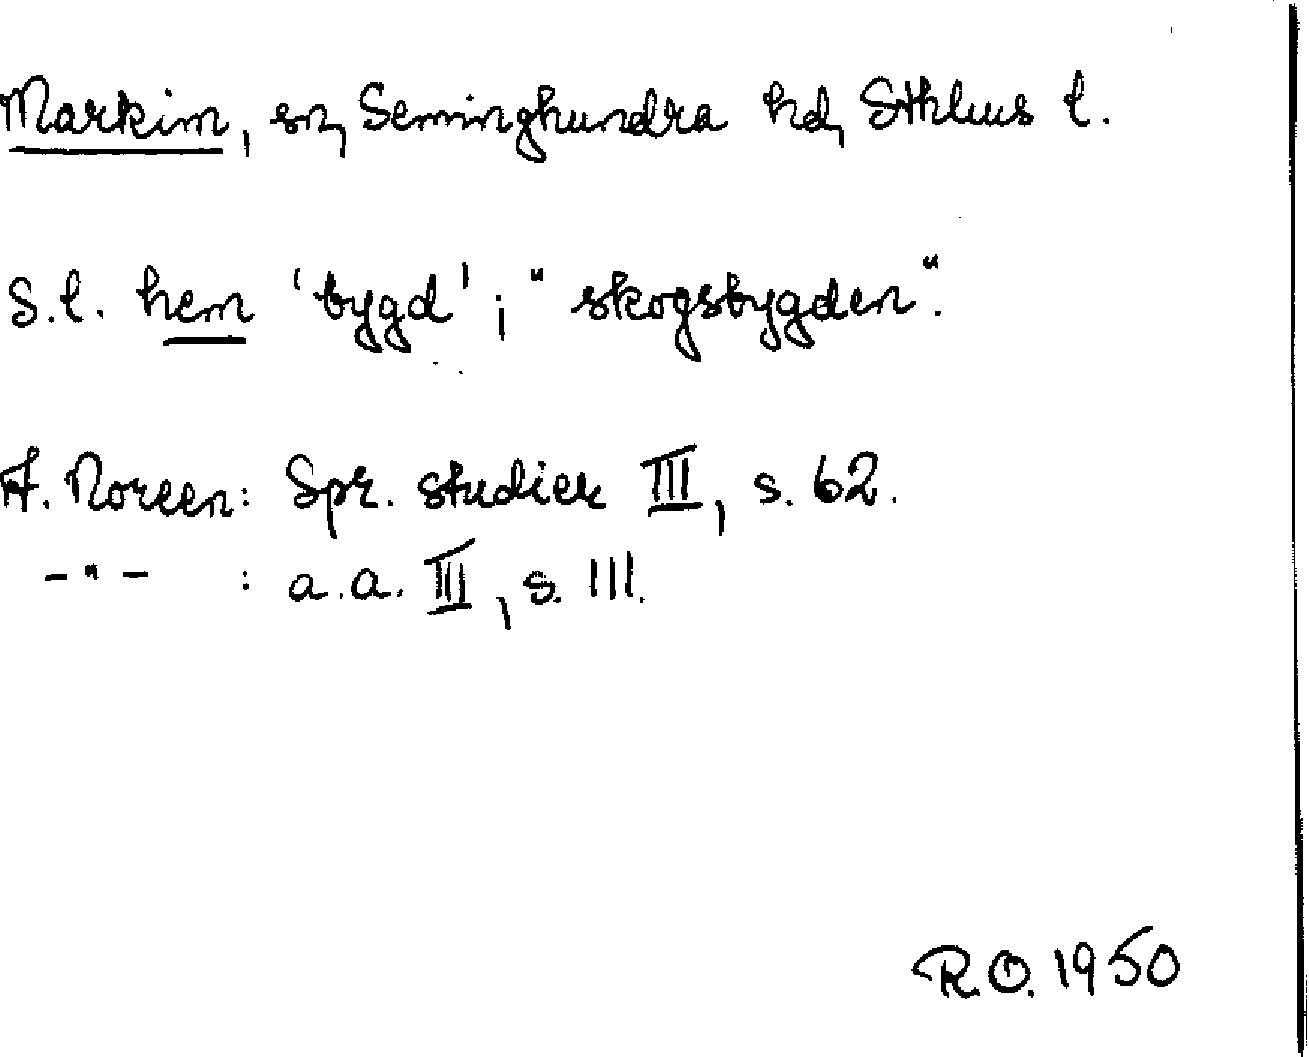 Markim, sn, Seminghundra hd, Sthlms l.
S.l. hem 'bygd'; "skogsbygden".
A. Noreen: Spr. studier III, s. 62.
-"- : a.a. III, s. 111.
R.O. 1950